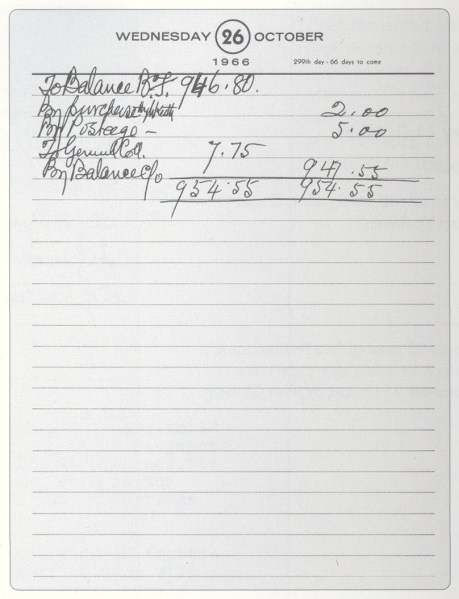 WEDNESDAY 26 OCTOBER
1966 299th day - 66 days to come
To Balance B.F. 946.80.
By purchase 2.00
By Postage — 5.00
To 7.75
By Balance C/o 947.55
954.55 954.55